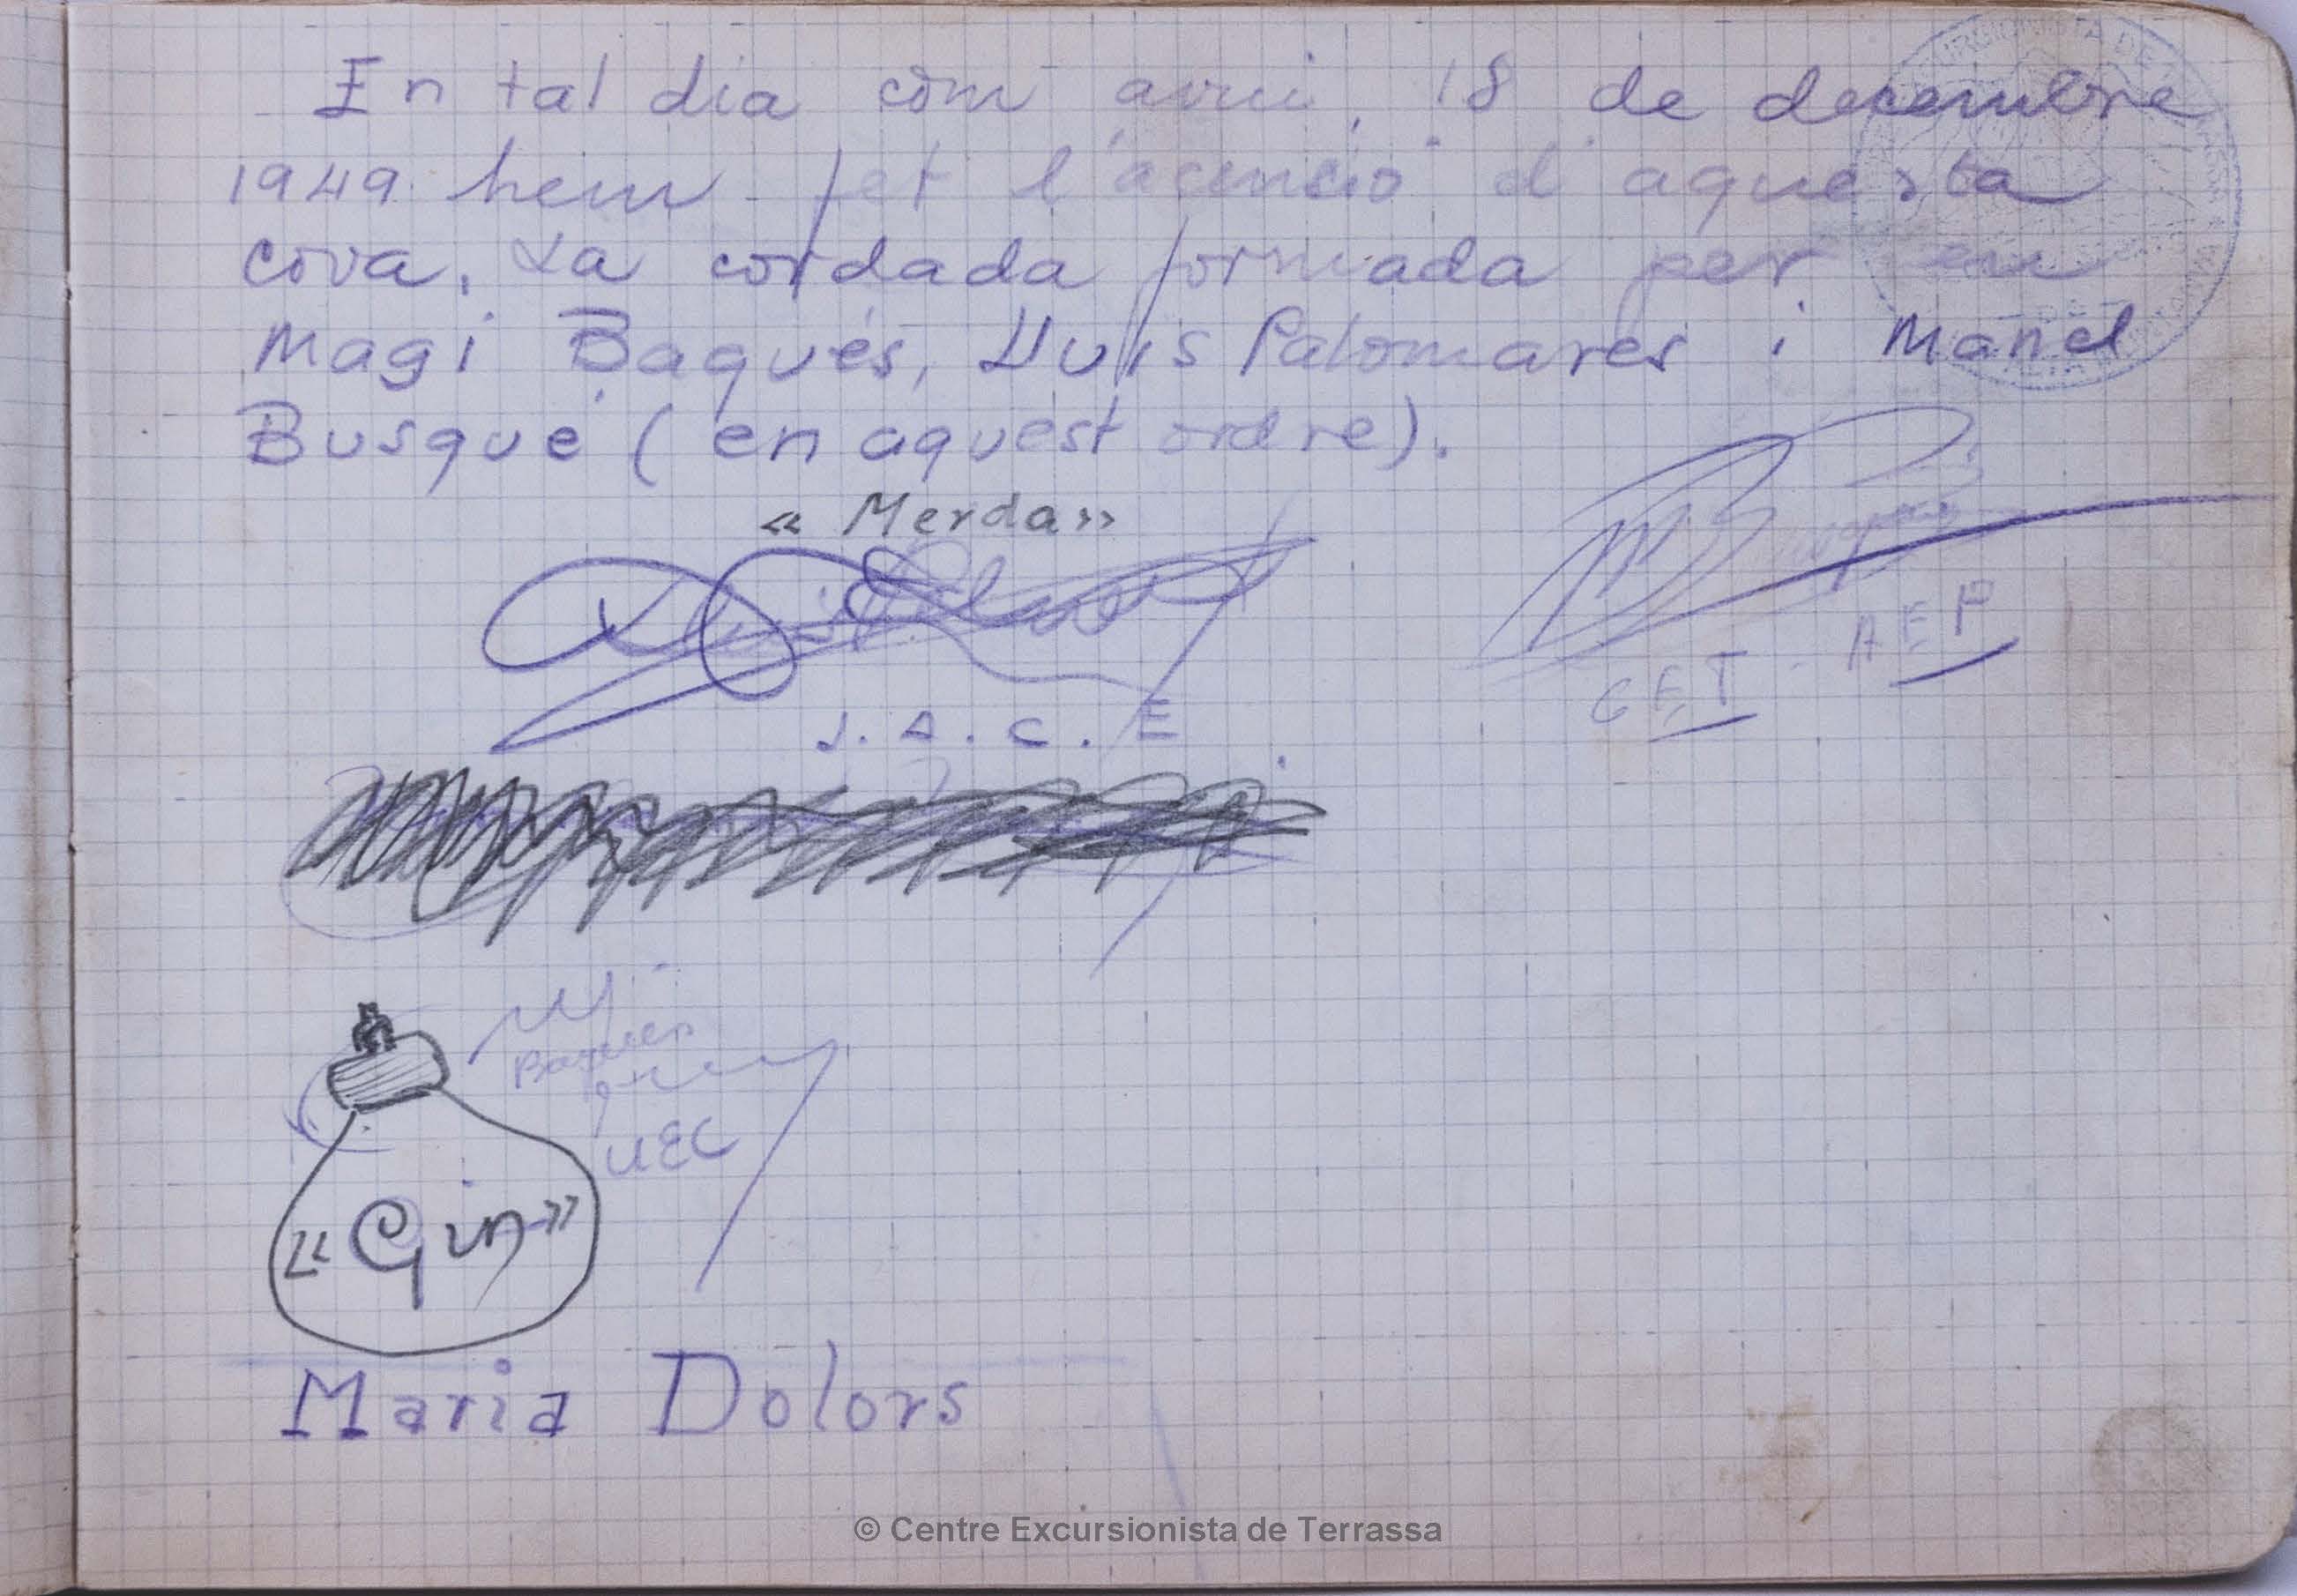 En tal dia com avui, 18 de decembre
1949 hem fet l'acenció d'aquesta
cova. La cordada formada per en
Magi Baqués, Lluis Palomares i Manel
Busqué (en aquest ordre).
«Merda»
J. A. C. E
CET - AEP
Baqués
UEC
«Gin»
Maria Dolors
© Centre Excursionista de Terrassa